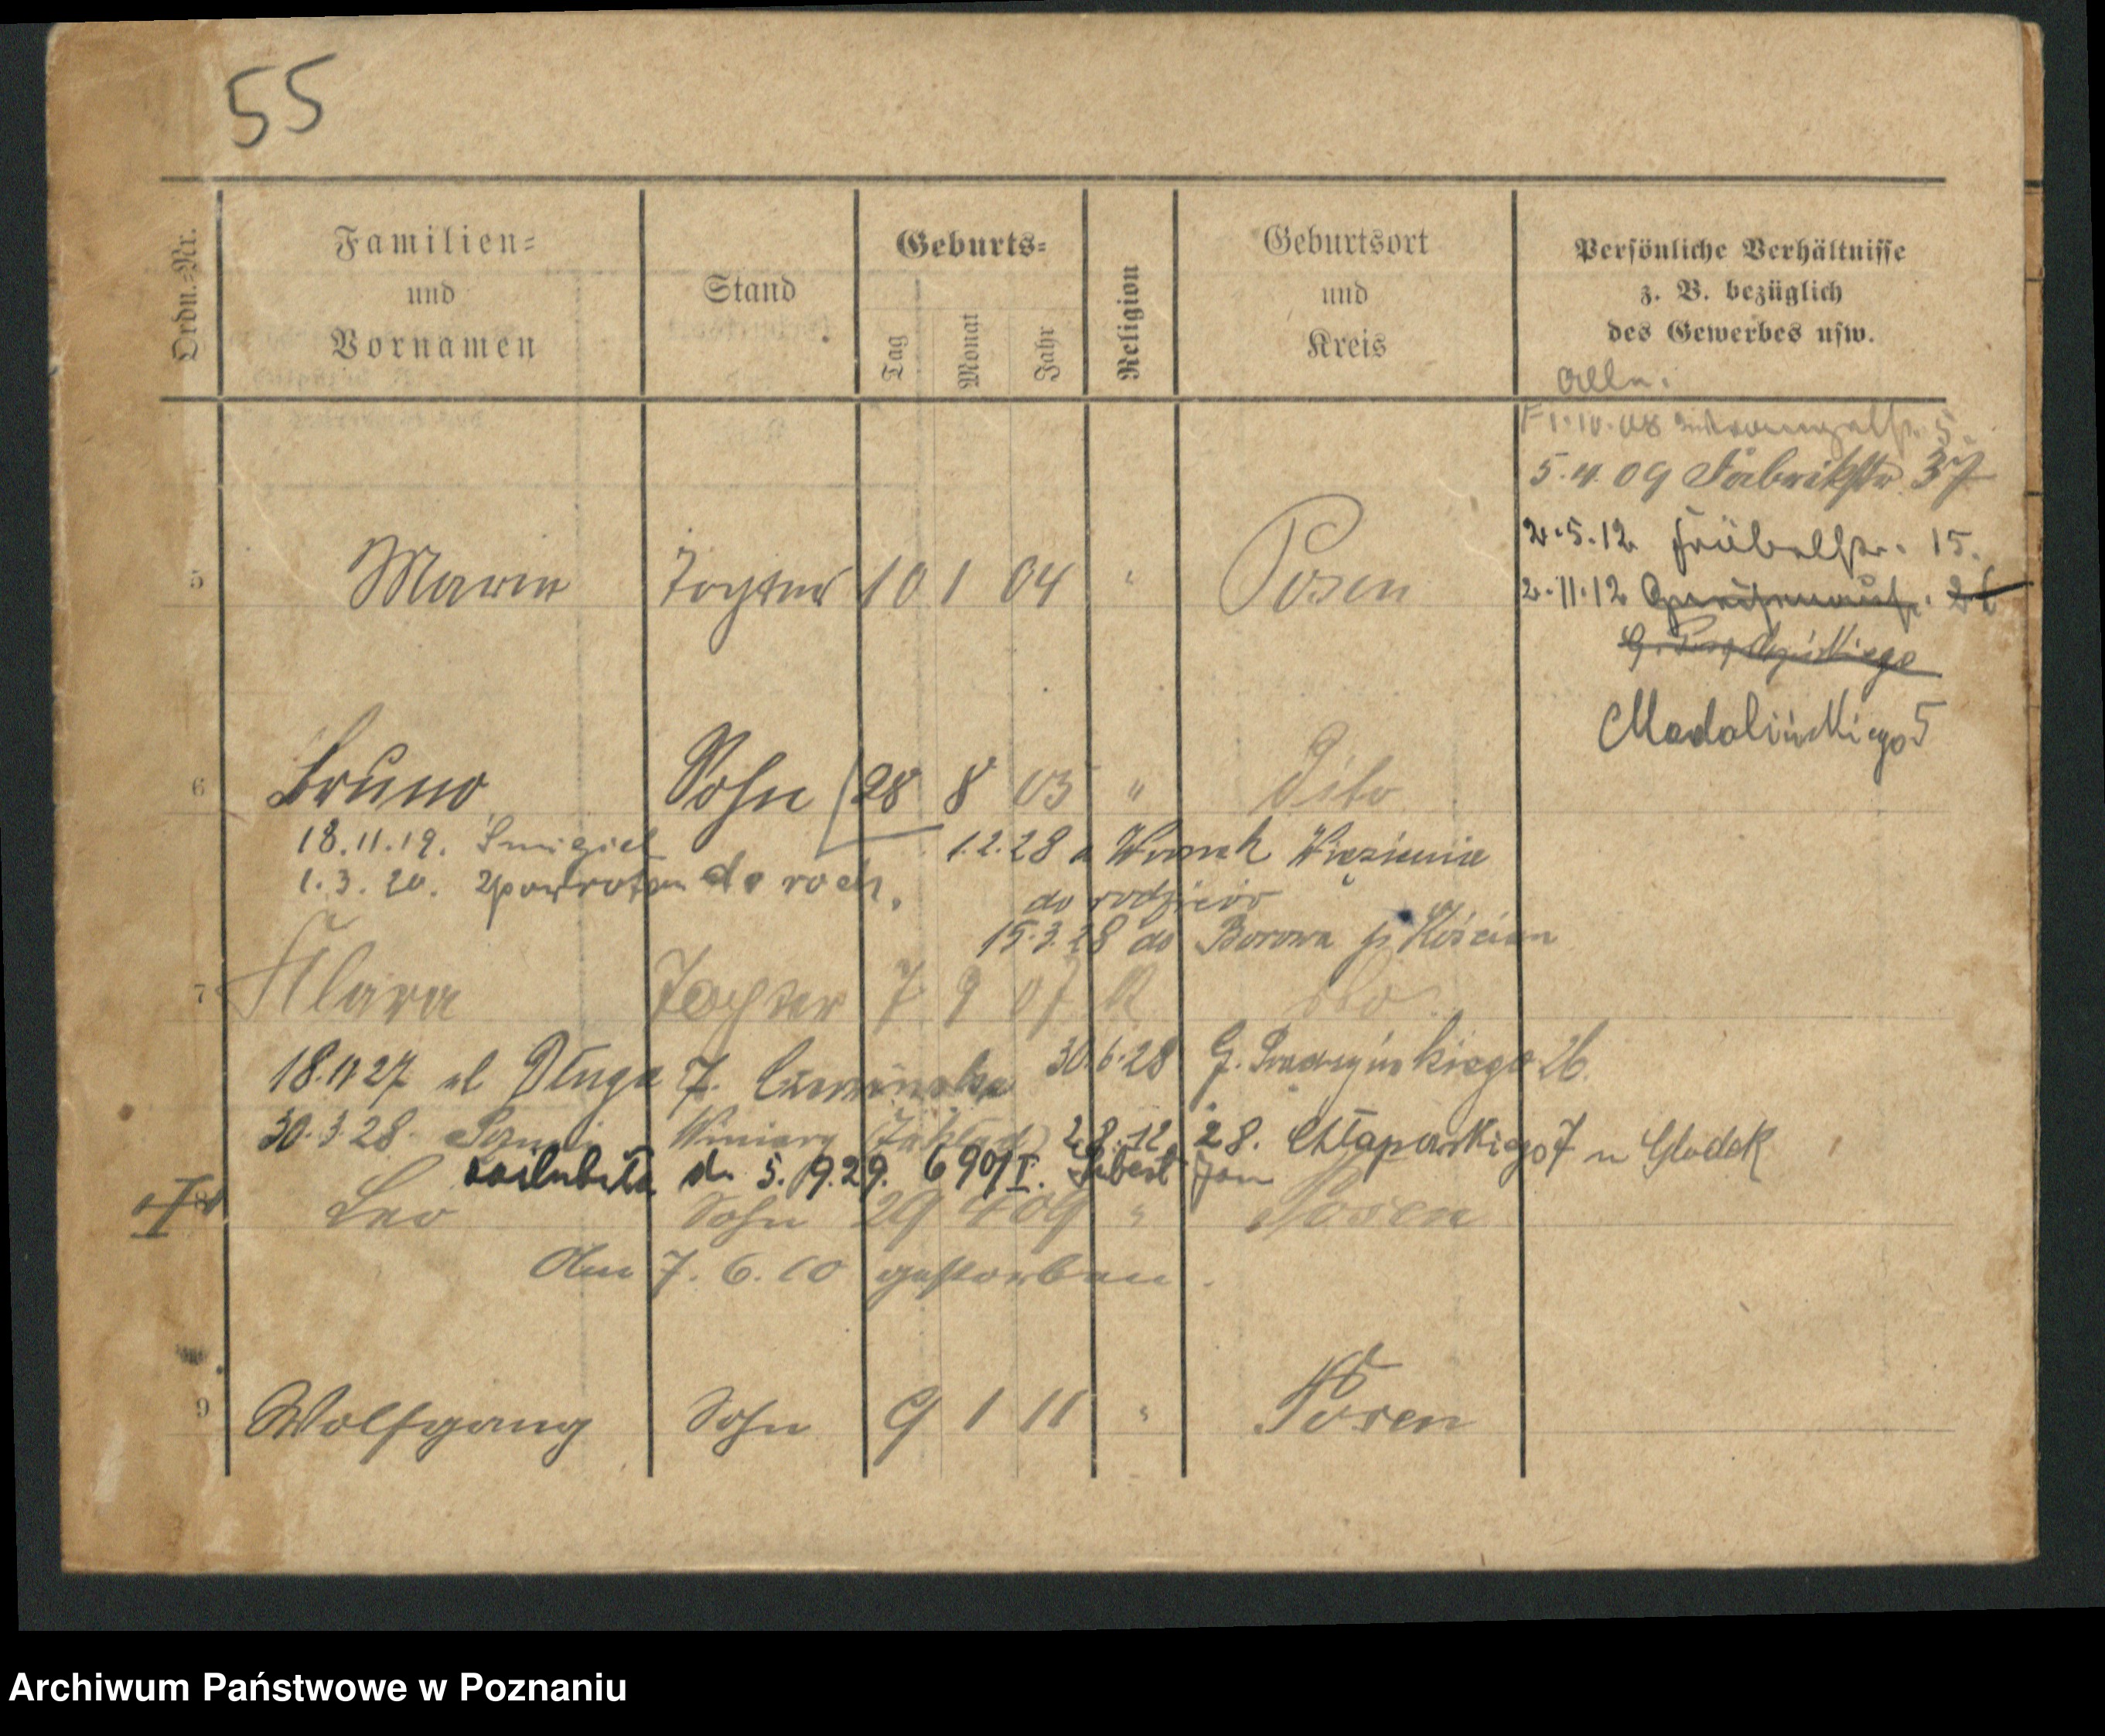 55
Ordn.-Nr.
Familien-
und
Vornamen
Stand
Geburts-
Tag
Monat
Jahr
Religion
Geburtsort
und
Kreis
Persönliche Verhältnisse
z. B. bezüglich
des Gewerbes usw.
1.10.08
5.4.09 Fabrikstr. 37
2.5.12 15.
2.11.12
Madalińskiego 5
5 Maria Tochter 10 1 04 " Posen
6 Bruno Sohn 28 8 05 " Dito
18.11.19. Śmigiel
1.3.20. zpowrotem do rodz.
1.2.28 z Wronek Więzienia
do rodziców
15.3.28 do Borowa p. Kościan
7 Klara Tochter 7 9 07 K dto.
18.11.27 ul Długa 7.
30.6.28 G. Prądzyńskiego 26.
30.3.28 Winiary
28.12.28. Chłapowskiego 7 u Glodek
zaślubiła dn 5.9.29. 690/I. Jan
8 Leo Sohn 29 4 09 " Posen
Am 7.6.10 gestorben.
9 Wolfgang Sohn 9 1 11 " Posen
Archiwum Państwowe w Poznaniu